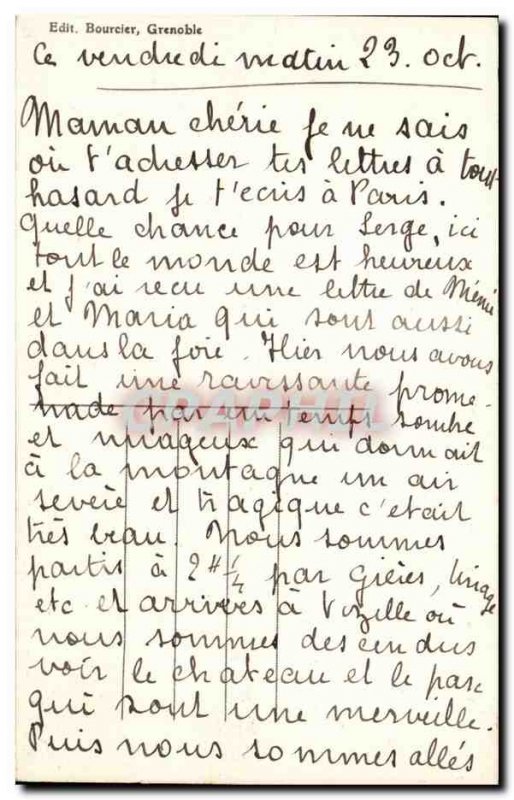 Edit. Bourcier, Grenoble
Ce vendredi matin 23. oct.
Maman chérie je ne sais
où t'adresser tes lettres à tout
hasard je t'ecris à Paris.
Quelle chance pour Serge, ici
tout le monde est heureux
et j'ai recu une lettre de Mémé
et Maria qui sont aussi
dans la joie. Hier nous avons
fait une ravissante prome-
nade par un temps sombre
et nuageux qui donnait
à la montagne un air
sevère et tragique c'etait
très beau. Nous sommes
partis à 2H 1/4 par Gières, Uriage
etc et arrivés à Vizille où
nous sommes descendus
voir le chateau et le parc
qui sont une merveille.
Puis nous sommes allés